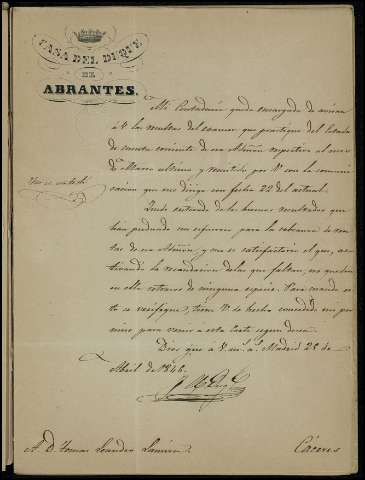 CASA DEL DUQUE
DE
ABRANTES.
Mi Contaduria queda encargada de avisar
á V. las resultas del examen que practique del Estado
de cuenta corriente de su Admon respectivo al mes
de Marzo ultimo y remitido por V. con la comuni-
cacion que me dirige con fecha 22 del actual.
Quedo enterado de los buenos resultados que
han producido sus esfuerzos para la cobranza de ren-
tas de su Admon, y me es satisfactorio el que, ac-
tivando la recaudacion de las que faltan, no queden
en ella retrasos de ninguna especie. Para cuando es-
to se verifique, tiene V. de hecho concedido mi per-
miso para venir á esta Corte segun desea.
Dios gue á V. ms. as. Madrid 28 de
Abril de 1846.
A D. Tomas Leandro
Cáceres